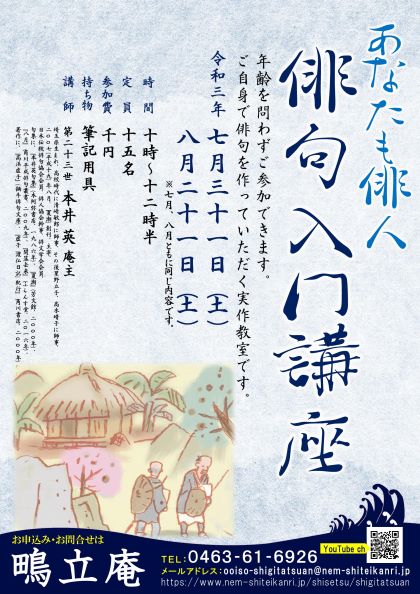 あなたも俳人
俳句入門講座
年齢を問わずご参加できます。
ご自身で俳句を作っていただく実作教室です。
令和三年 七月三十一日（土）
八月二十一日（土）
※七月、八月ともに同じ内容です。
時間 十時～十二時半
定員 十五名
参加費 千円
持ち物 筆記用具
講師 第二十三世 本井 英 庵主
お申込み・お問合せは
鴫立庵
TEL:0463-61-6926
メールアドレス:ooiso-shigitatsuan@nem-shiteikanri.jp
https://www.nem-shiteikanri.jp/shisetsu/shigitatsuan
YouTube ch